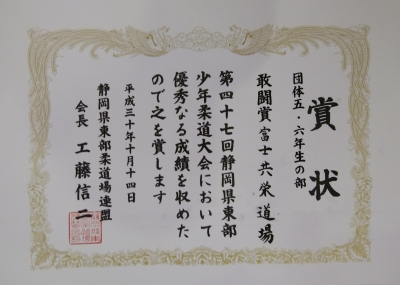 賞状
団体五・六年生の部
敢闘賞 富士共栄道場
第四十七回静岡県東部
少年柔道大会において
優秀なる成績を収めた
ので之を賞します
平成三十年十月十四日
静岡県東部柔道場連盟
会長 工藤信二